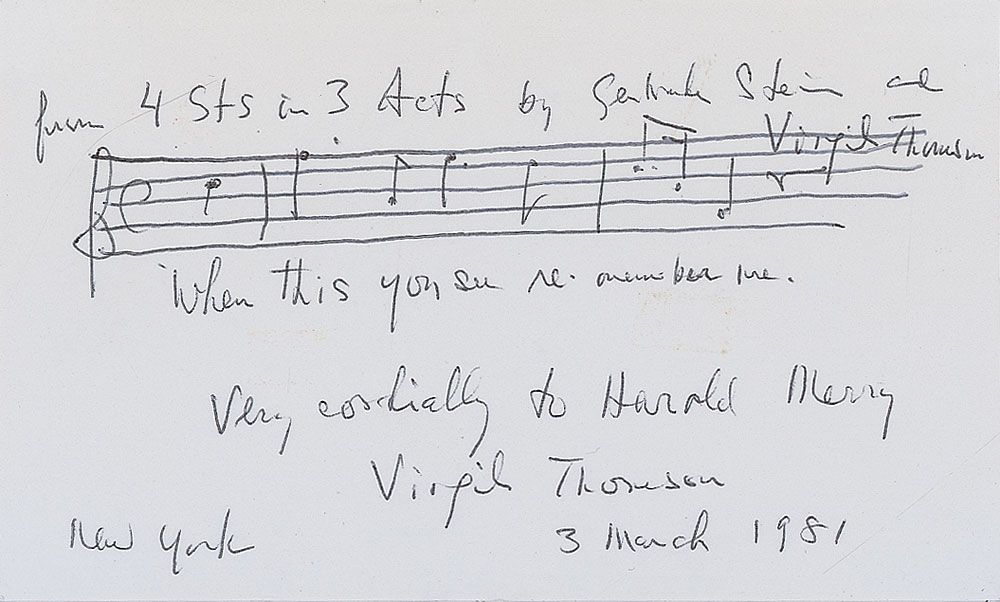 from 4 Sts in 3 Acts by Gertrude Stein and
Virgil Thomson
When this you see re-member me.
Very cordially to Harold Merry
Virgil Thomson
New York 3 March 1981